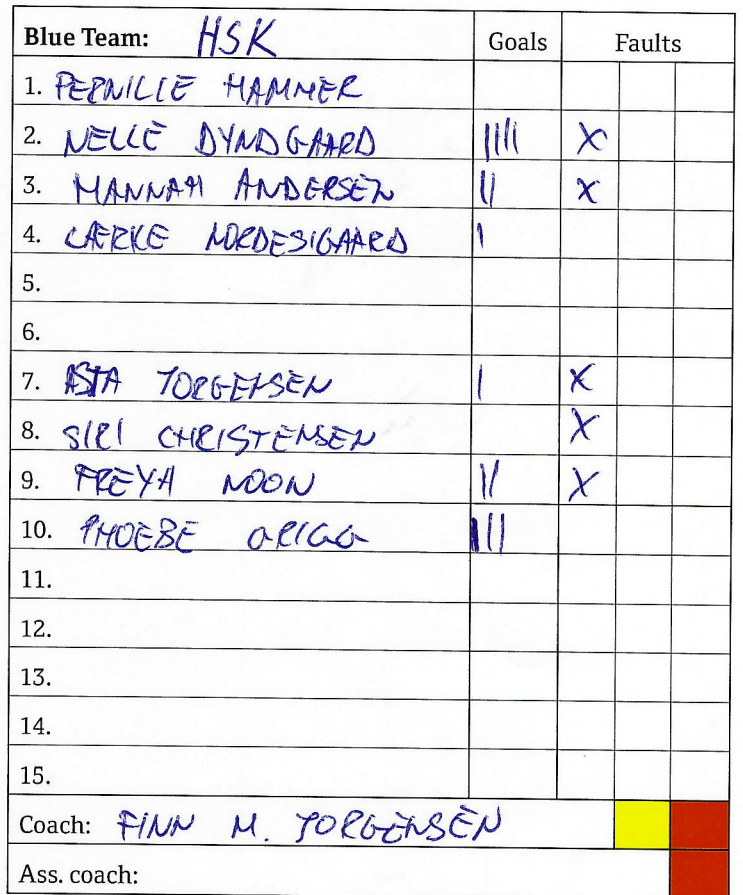 Blue Team: HSK Goals Faults
1. PERNILLE HAMMER
2. NELLE DYNDGAARD |||| X
3. HANNAH ANDERSEN || X
4. LÆRKE NORDESIGAARD |
5.
6.
7. ASTA JORGENSEN | X
8. SIRI CHRISTENSEN X
9. FREYA NOON || X
10. PHOEBE GRIGG |||
11.
12.
13.
14.
15.
Coach: FINN M. JORGENSEN
Ass. coach: